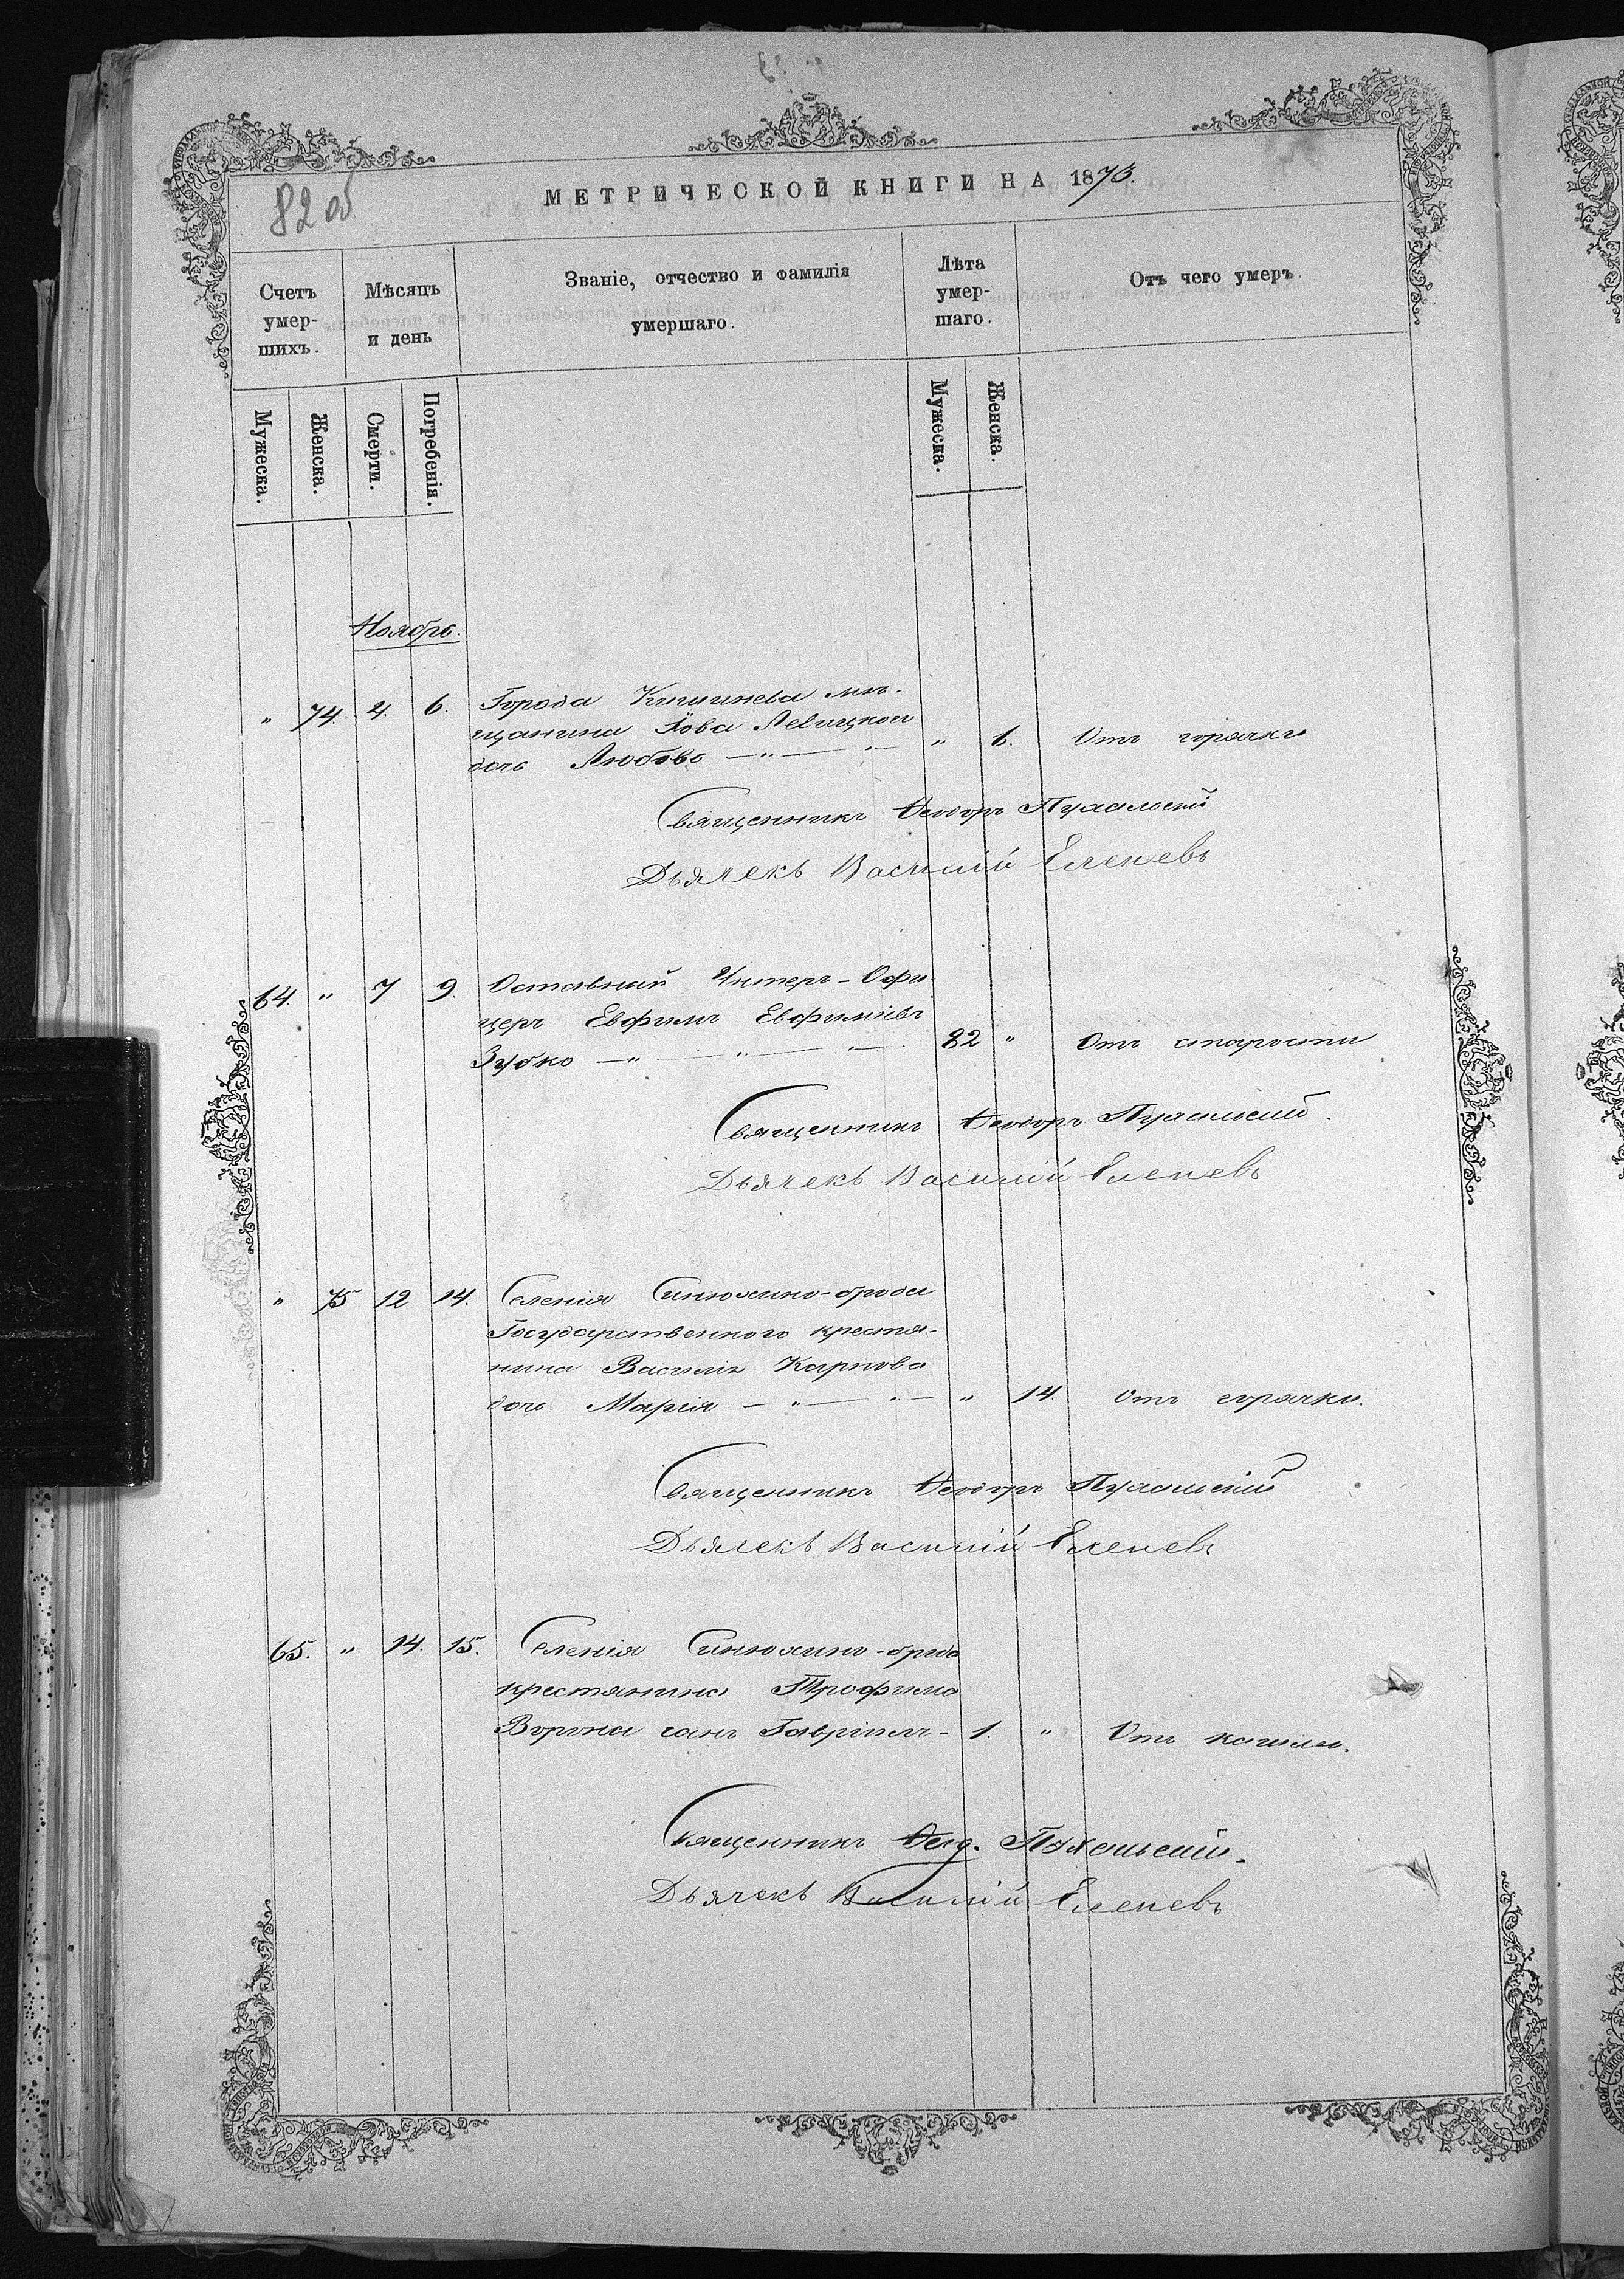 820б
МЕТРИЧЕСКОЙ КНИГИ НА 1873.
Счетъ умер-шихъ.
Мѣсяцъ и день
Званіе, отчество и фамилія умершаго.
Лѣта умер-шаго.
Отъ чего умеръ.
Мужеска.
Женска.
Смерти.
Погребенія.
Мужеска.
Женска.
Ноябрь.
" 74. 4. 6. Города Кишинева мѣ-
щанина Іова Левицкого
дочь Любовь — " — " — " 6. Отъ горячки
Священникъ Ѳеодоръ
Дьячекъ Василій Еленевъ
64. " 7 9. Оставный Унтеръ-Офи-
церъ Евфимъ Евфиміевъ
Зубко — " — " — " — 82 " Отъ старости
Священникъ Ѳеодоръ
Дьячекъ Василій Еленевъ
" 75 12 14. Селенія Синюхино-брода
Государственного крестя-
нина Василія Карпова
дочь Марія — " — " — " 14. Отъ горячки.
Священникъ Ѳеодоръ
Дьячекъ Василій Еленевъ
65. " 14. 15. Селенія Синюхино-брода
крестянина Трофима
сынъ Гавріилъ - 1. " Отъ кашля.
Священникъ Ѳеод.
Дьячекъ Василій Еленевъ